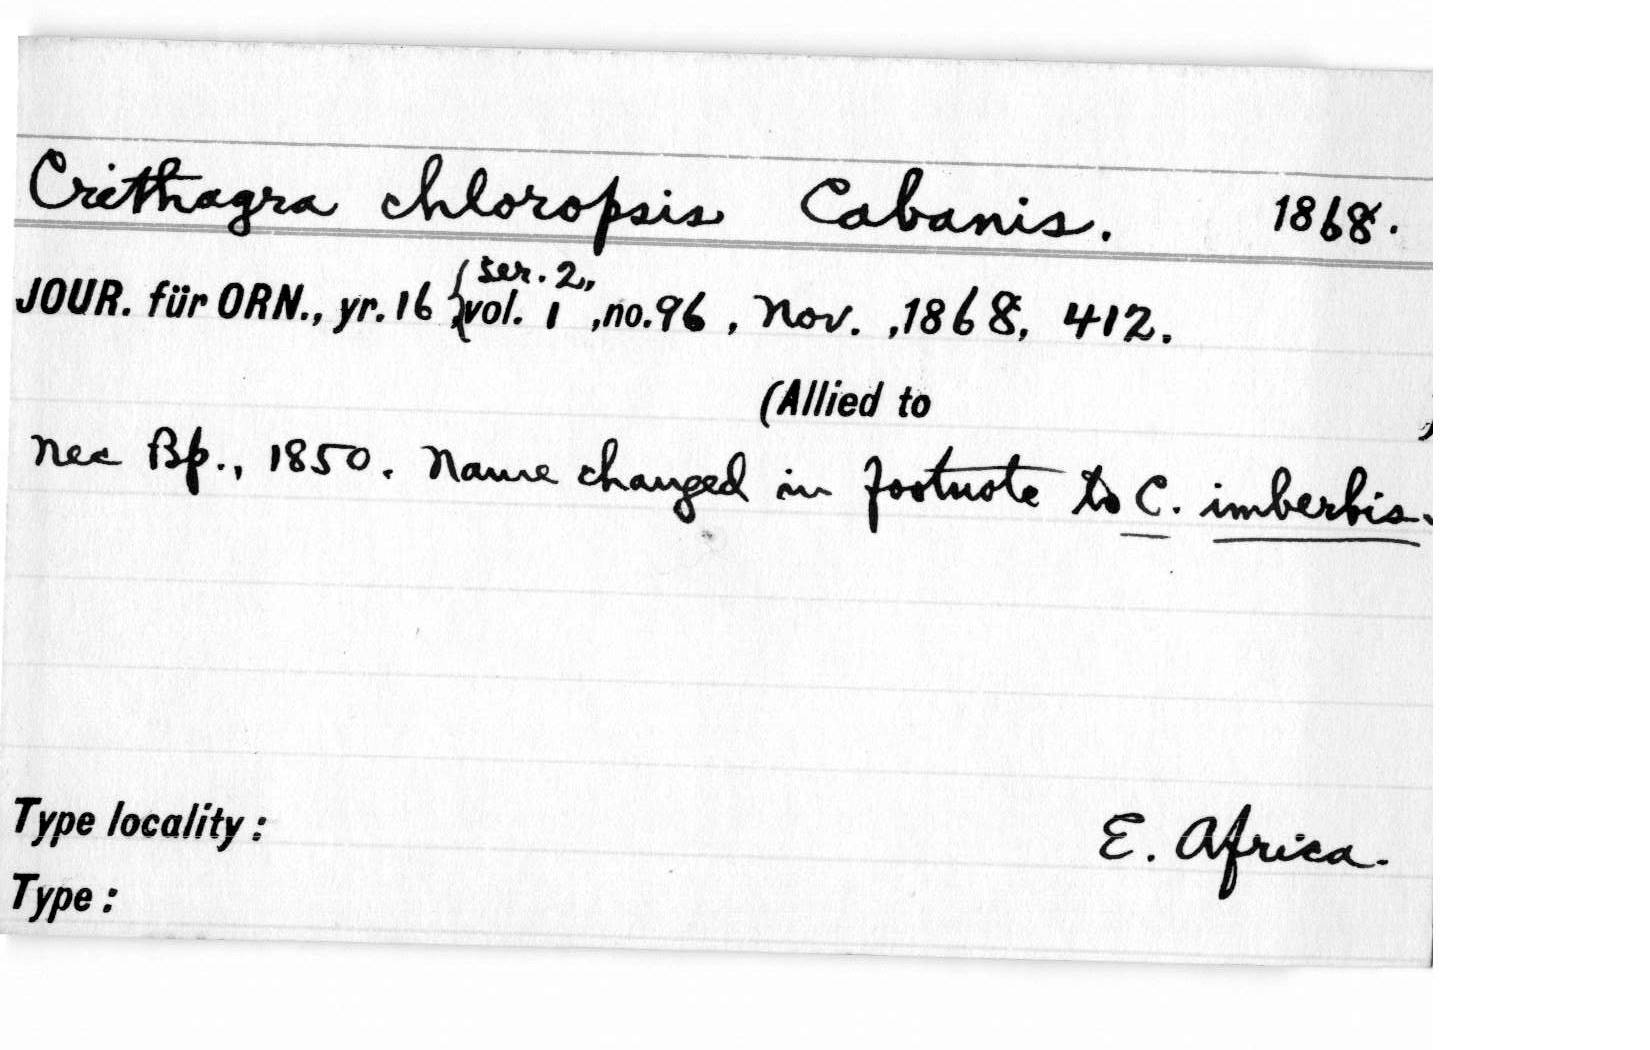 Crithagra chloropsis Cabanis. 1868.
ser. 2,
JOUR. für ORN., yr. 16, {vol. 1, no. 96, Nov., 1868, 412.
(Allied to )
nec Bp., 1850. Name changed in footnote to C. imberbis.
Type locality: E. Africa.
Type: